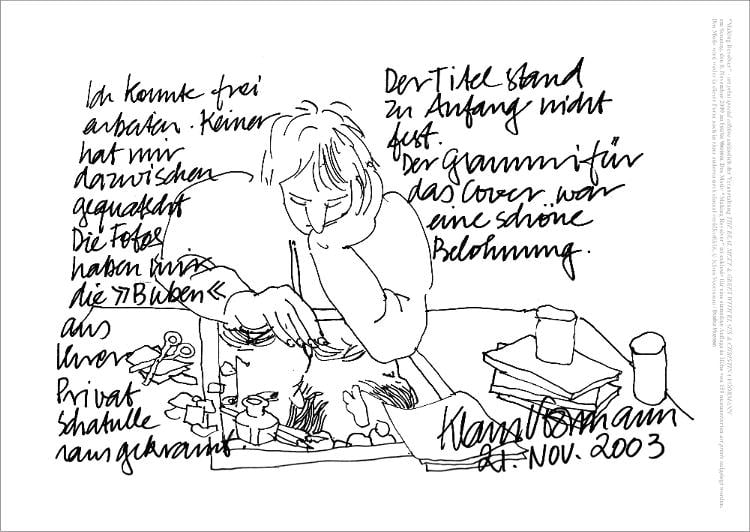 Ich konnte frei
arbeiten. Keiner
hat mir
dazwischen
gequatscht
Die Fotos
haben mir
die »Buben«
aus
ihrer
Privat
Schatulle
rausgekramt.
Der Titel stand
zu Anfang nicht
fest.
Der Grammi für
das Cover war
eine schöne
Belohnung.
Klaus Voormann
21. NOV. 2003